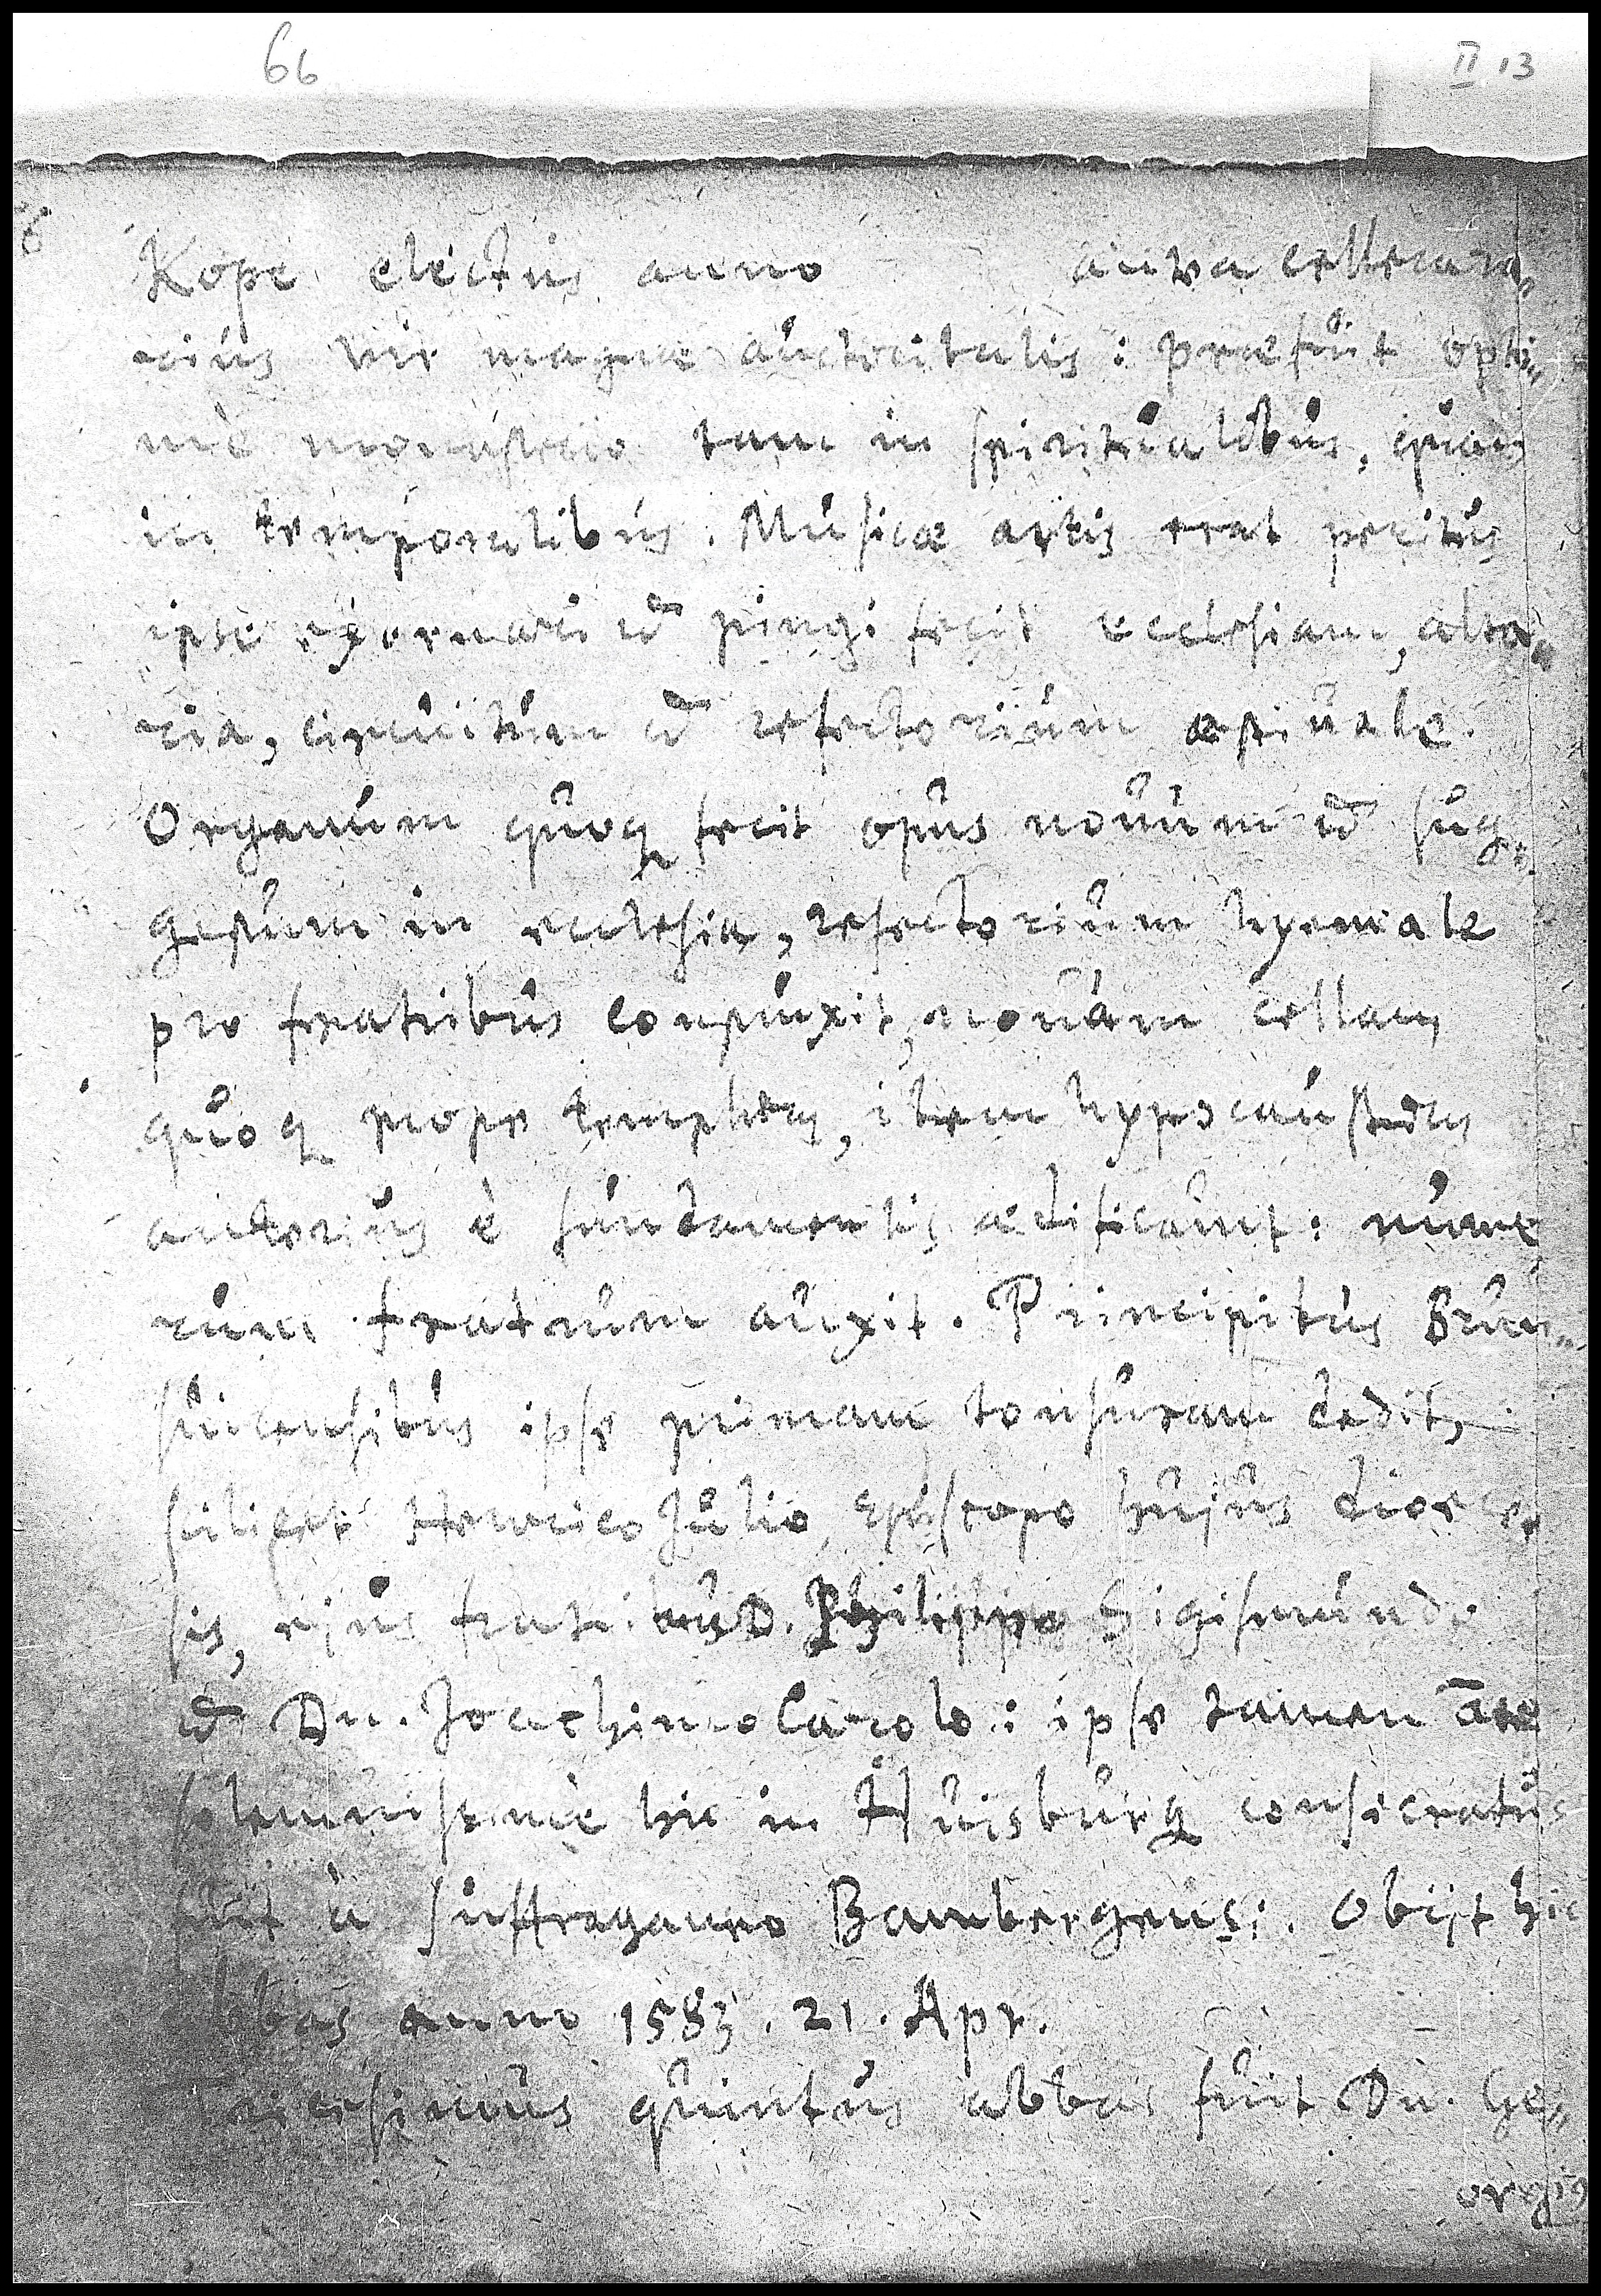 66
II 13
Kope electus anno antea cellera„
rius vir magnae auctoritatis: praefuit opti„
mè monasterio tam in spiritualibus, quam
in temporalibus. Musicae artis erat peritus
ipse exornari et pingi fecit ecclesiam, alta„
ria, circuitum et refectorium aestiuale.
Organum quoq fecit opus nouum et sug„
gestum in ecclesia, refectorium hyemale
pro fratribus construxit, nouam cellam
quoq prope templum, item hypocaustum
anterius è fundamentis aedificauit: nume
rum fratrum auxit. Principibus Brun„
suicensibus ipse primam tonsuram dedit,
scilicet Henrico Julio, Episcopo hujus dioece„
sis, ejus fratribus D. Philippo Sigismundo
et Dn. Joachimo Carolo: ipse tamen
solemnissimè hic in Huisburg consecratus
fuit à suffraganeo Bambergens:. Obijt hic
abbas anno 1583. 21. Apr.
Tricesimus quintus abbas fuit Dn. Ge„
orgig